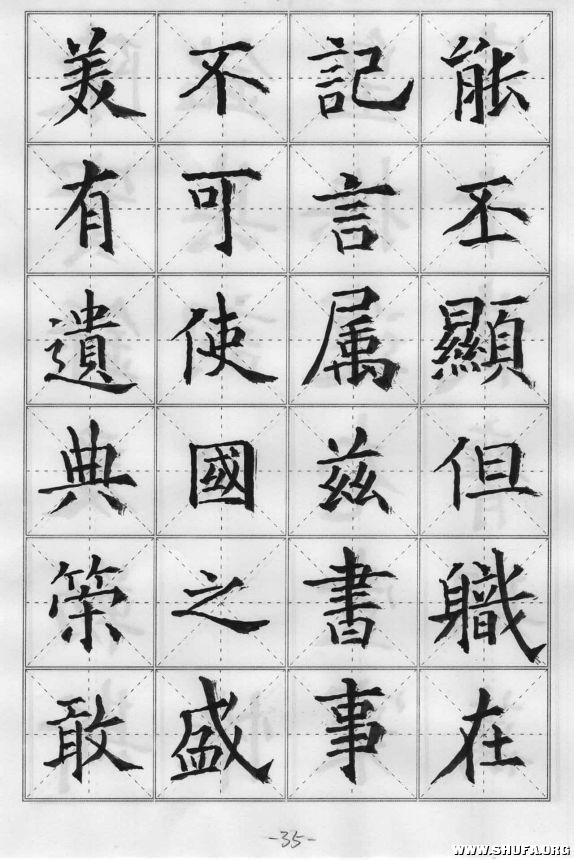 能丕顯但軄在
記言属兹書事
不可使國之盛
美有遺典䇿敢
-35-
WWW.SHUFA.ORG